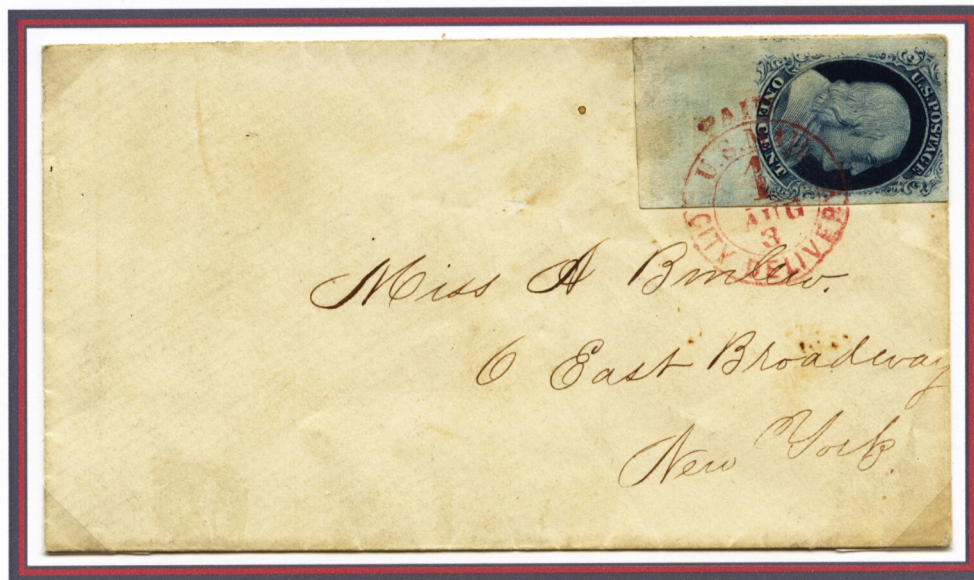 U.S. POSTAGE
ONE CENT
PAID
U.S. MAIL
1
AUG
3
CITY DELIVERY
Miss A
6 East Broadway
New York.